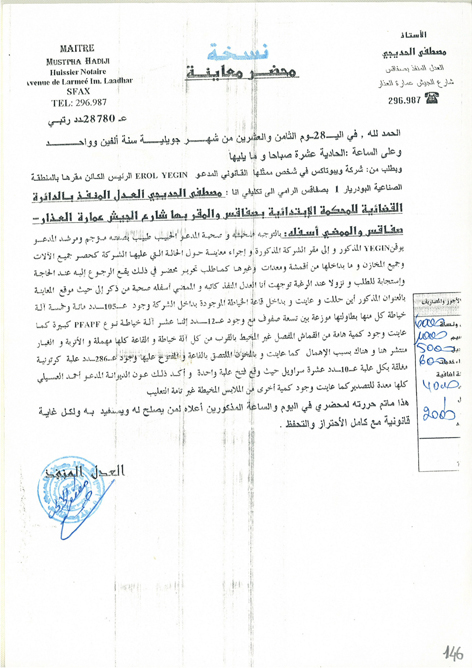 MAITRE
MUSTPHA HADIJI
Huissier Notaire
avenue de Larmeé Im. Laadhar
SFAX
TEL: 296.987
الأستاذ
مصطفى الحديجي
العدل المنفذ بصفاقس
شارع الجيش عمارة العذار
296.987
نسخة
محضر معاينة
عـ28780ـدد رتبي
الحمد لله , في اليـ28ـوم الثامن والعشرين من شهــر جويليــة سنة ألفين وواحـــد
وعلى الساعة :الحادية عشرة صباحا و ما يليها
ويطلب من: شركة ويبوتاكس في شخص ممثلها القانوني المدعـو EROL YEGIN الرئيس الكائن مقرها بالمنطقة
الصناعية البودريار 1 بصفاقس الرامي الى تكليفي انا : مصطفى الحديجي العدل المنفذ بالدائرة
القضائية للمحكمة الإبتدائية بصفاقس والمقر بها شارع الجيش عمارة العذار-
صفاقس والممضي أسفله: بالتوجه صحبته و صحبة المدعو الحبيب طبيب بصفته مترجم ومرشد المدعـو
YEGIN المذكور و إلى مقر الشركة المذكورة و إجراء معاينة حـول الحالـة التـي عليهـا الشـركة كـحصر جميـع الآلات
وجميع المخازن و ما بداخلها من أقمشة ومعدات وغيرها كمـاطلب تحريـر محضـر في ذلـك يقـع الرجـوع إليـه عنـد الحاجـة
وإستجابة للطلب و نزولا عند الرغبة توجهت أنا العدل المنفذ كاتبه و الممضي أسفله صحبة من ذكر إلى حيث موقـع المعاينـة
بالعنوان المذكور أين حللت و عاينت و بداخل قاعة الخياطة الموجودة بداخل الشركة وجود عـ105ـدد مائـة وخمسـة آلـة
خياطة كل منها بطاولتها موزعة بين تسعة صفوف مع وجود عـ12ـدد إثنـا عشـر آلـة خياطـة نـوع PFAFF كبيرة كمـا
عاينت وجود كمية هامة من القماش المفصل غير المخيط بالقرب من كل آلة خياطة و القاعة كلها مهملـة و الأتربـة و الغبـار
منتشر هنا و هناك بسبب الإهمال كما عاينت و بالمخزن الملتصق بالقاعة و المفتوح عليها وجود عـ286ـدد علبة كرتونية
مغلقة بكل علبة عـ10ـدد عشرة سراويل حيث وقع فتح علبة واحدة و أكـد ذلـك عـون الديوانـة المدعـو أحمـد العسـيلي
كلها معدة للتصدير كما عاينت وجود كمية أخرى من الملابس المخيطة غير تامة التعليب
هذا ماتم حررته لمحضري في اليوم والساعة المذكورين أعلاه لمن يصلح له ويستفيد به ولكل غاية
قانونية مع كامل الأحتراز والتحفظ .
العدل المنفذ
146